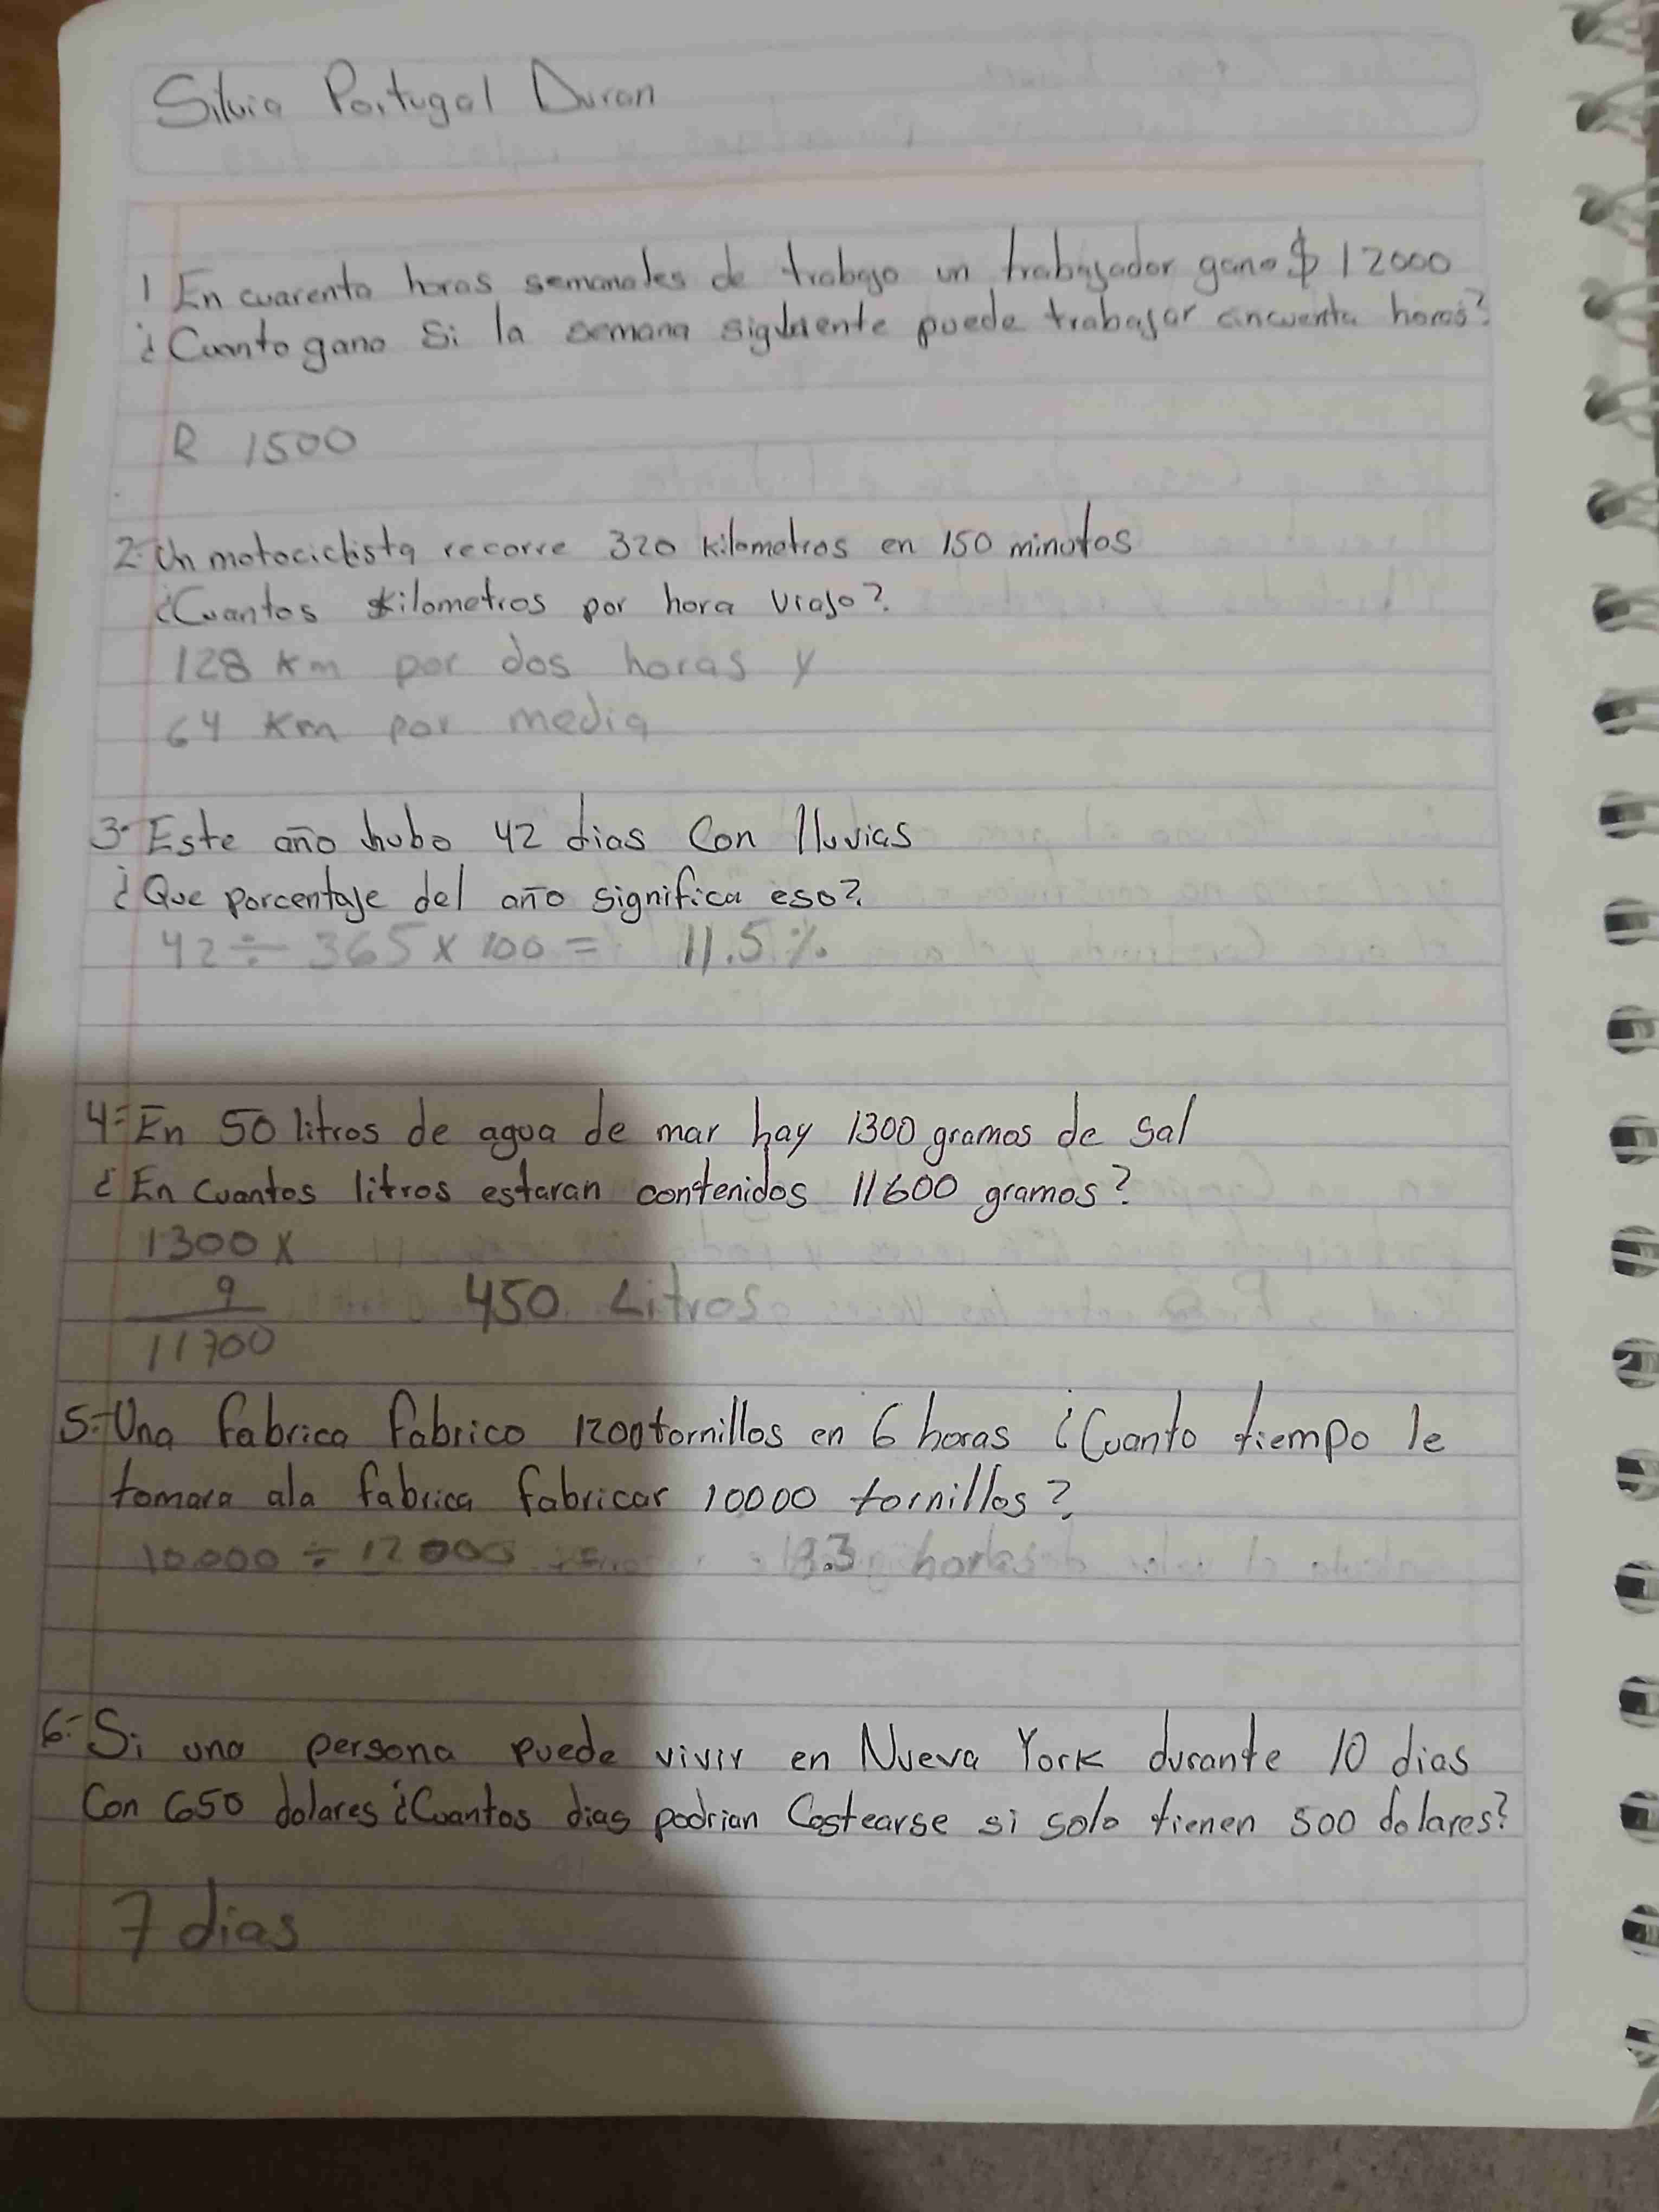 Silvia Portugal Duran
1 En cuarenta horas semanales de trabajo un trabajador gano $ 12000
¿Cuanto gano si la semana siguiente puede trabajar cincuenta horas?
R 1500
2- Un motociclista recorre 320 kilometros en 150 minutos
¿Cuantos kilometros por hora viajo?
128 Km por dos horas y
64 Km por media
3- Este año hubo 42 dias Con lluvias
¿Que porcentaje del año significa eso?
42 ÷ 365 x 100 = 11.5 %
4- En 50 litros de agua de mar hay 1300 gramos de sal
¿En cuantos litros estaran contenidos 11600 gramos?
1300 x
9 450 Litros
11700
5- Una fabrica fabrico 1200 tornillos en 6 horas ¿Cuanto tiempo le
tomara ala fabrica fabricar 10000 tornillos?
10.000 ÷ 12 horas
6- Si una persona puede vivir en Nueva York durante 10 dias
Con 650 dolares ¿Cuantos dias podrian Costearse si solo tienen 500 dolares?
7 dias